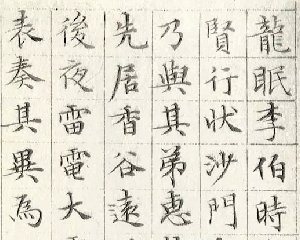 龍眠李伯時
賢行狀沙門
乃與其弟恵
先居香谷遠
後夜雷電大
表奏其異為